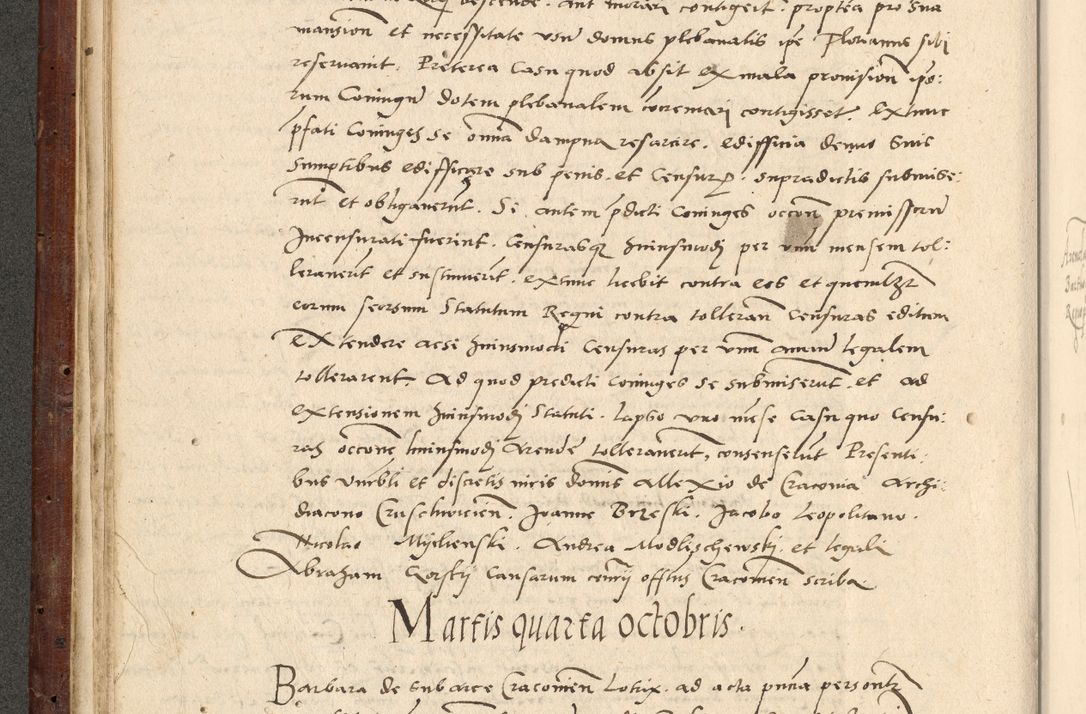 descende. aut morari contigerit. proptea pro sua
mansion et necessitate unu domus plebanalis ipe Florianus sibi
reservavit. Preterea Casu quod absit ex mala provision ipo:
rum Coniugu dotem plebanalem cocremari contigisset. Extunc
pfati Coniuges se omia dampna resarcire. edifficia denuo suis
Sumptibus edifficare sub penis. et Censur. supradictis submise:
rut et obligaverut. Si autem pdicti Coniuges occon premissoru
Incensurati fuerint. Censurasq huiusmodj per unu mensem tol:
leraverit et sustinuerit. extunc licebit contra eos et quemlibet
eorum seorsum Statutum Regni contra tolleran Censuras editum
Extendere acsi huiusmodi Censuras per unu annu legalem
tollerarent Ad quod predicti Coniuges se submiserut. et ad
extensionem huiusmodj Statuti. lapso uno mese Casu quo Censu:
ras occone huiusmodj Arende tolleraverit, consenserut Presenti:
bus Venbli et discretis viris domis Allexio de Cracovia Archi:
diacono Cruschwicien. Joanne Brzeski. Jacobo Leopolitano.
Nicolao Mijelienski. Andrea Modlischewskj. et legali
Abraham Gorskij Causarum conrij offitus Cracovien scriba
Martis quarta octobris.
Barbara de sub arce Cracovien Lotrix. ad acta pntia persontr